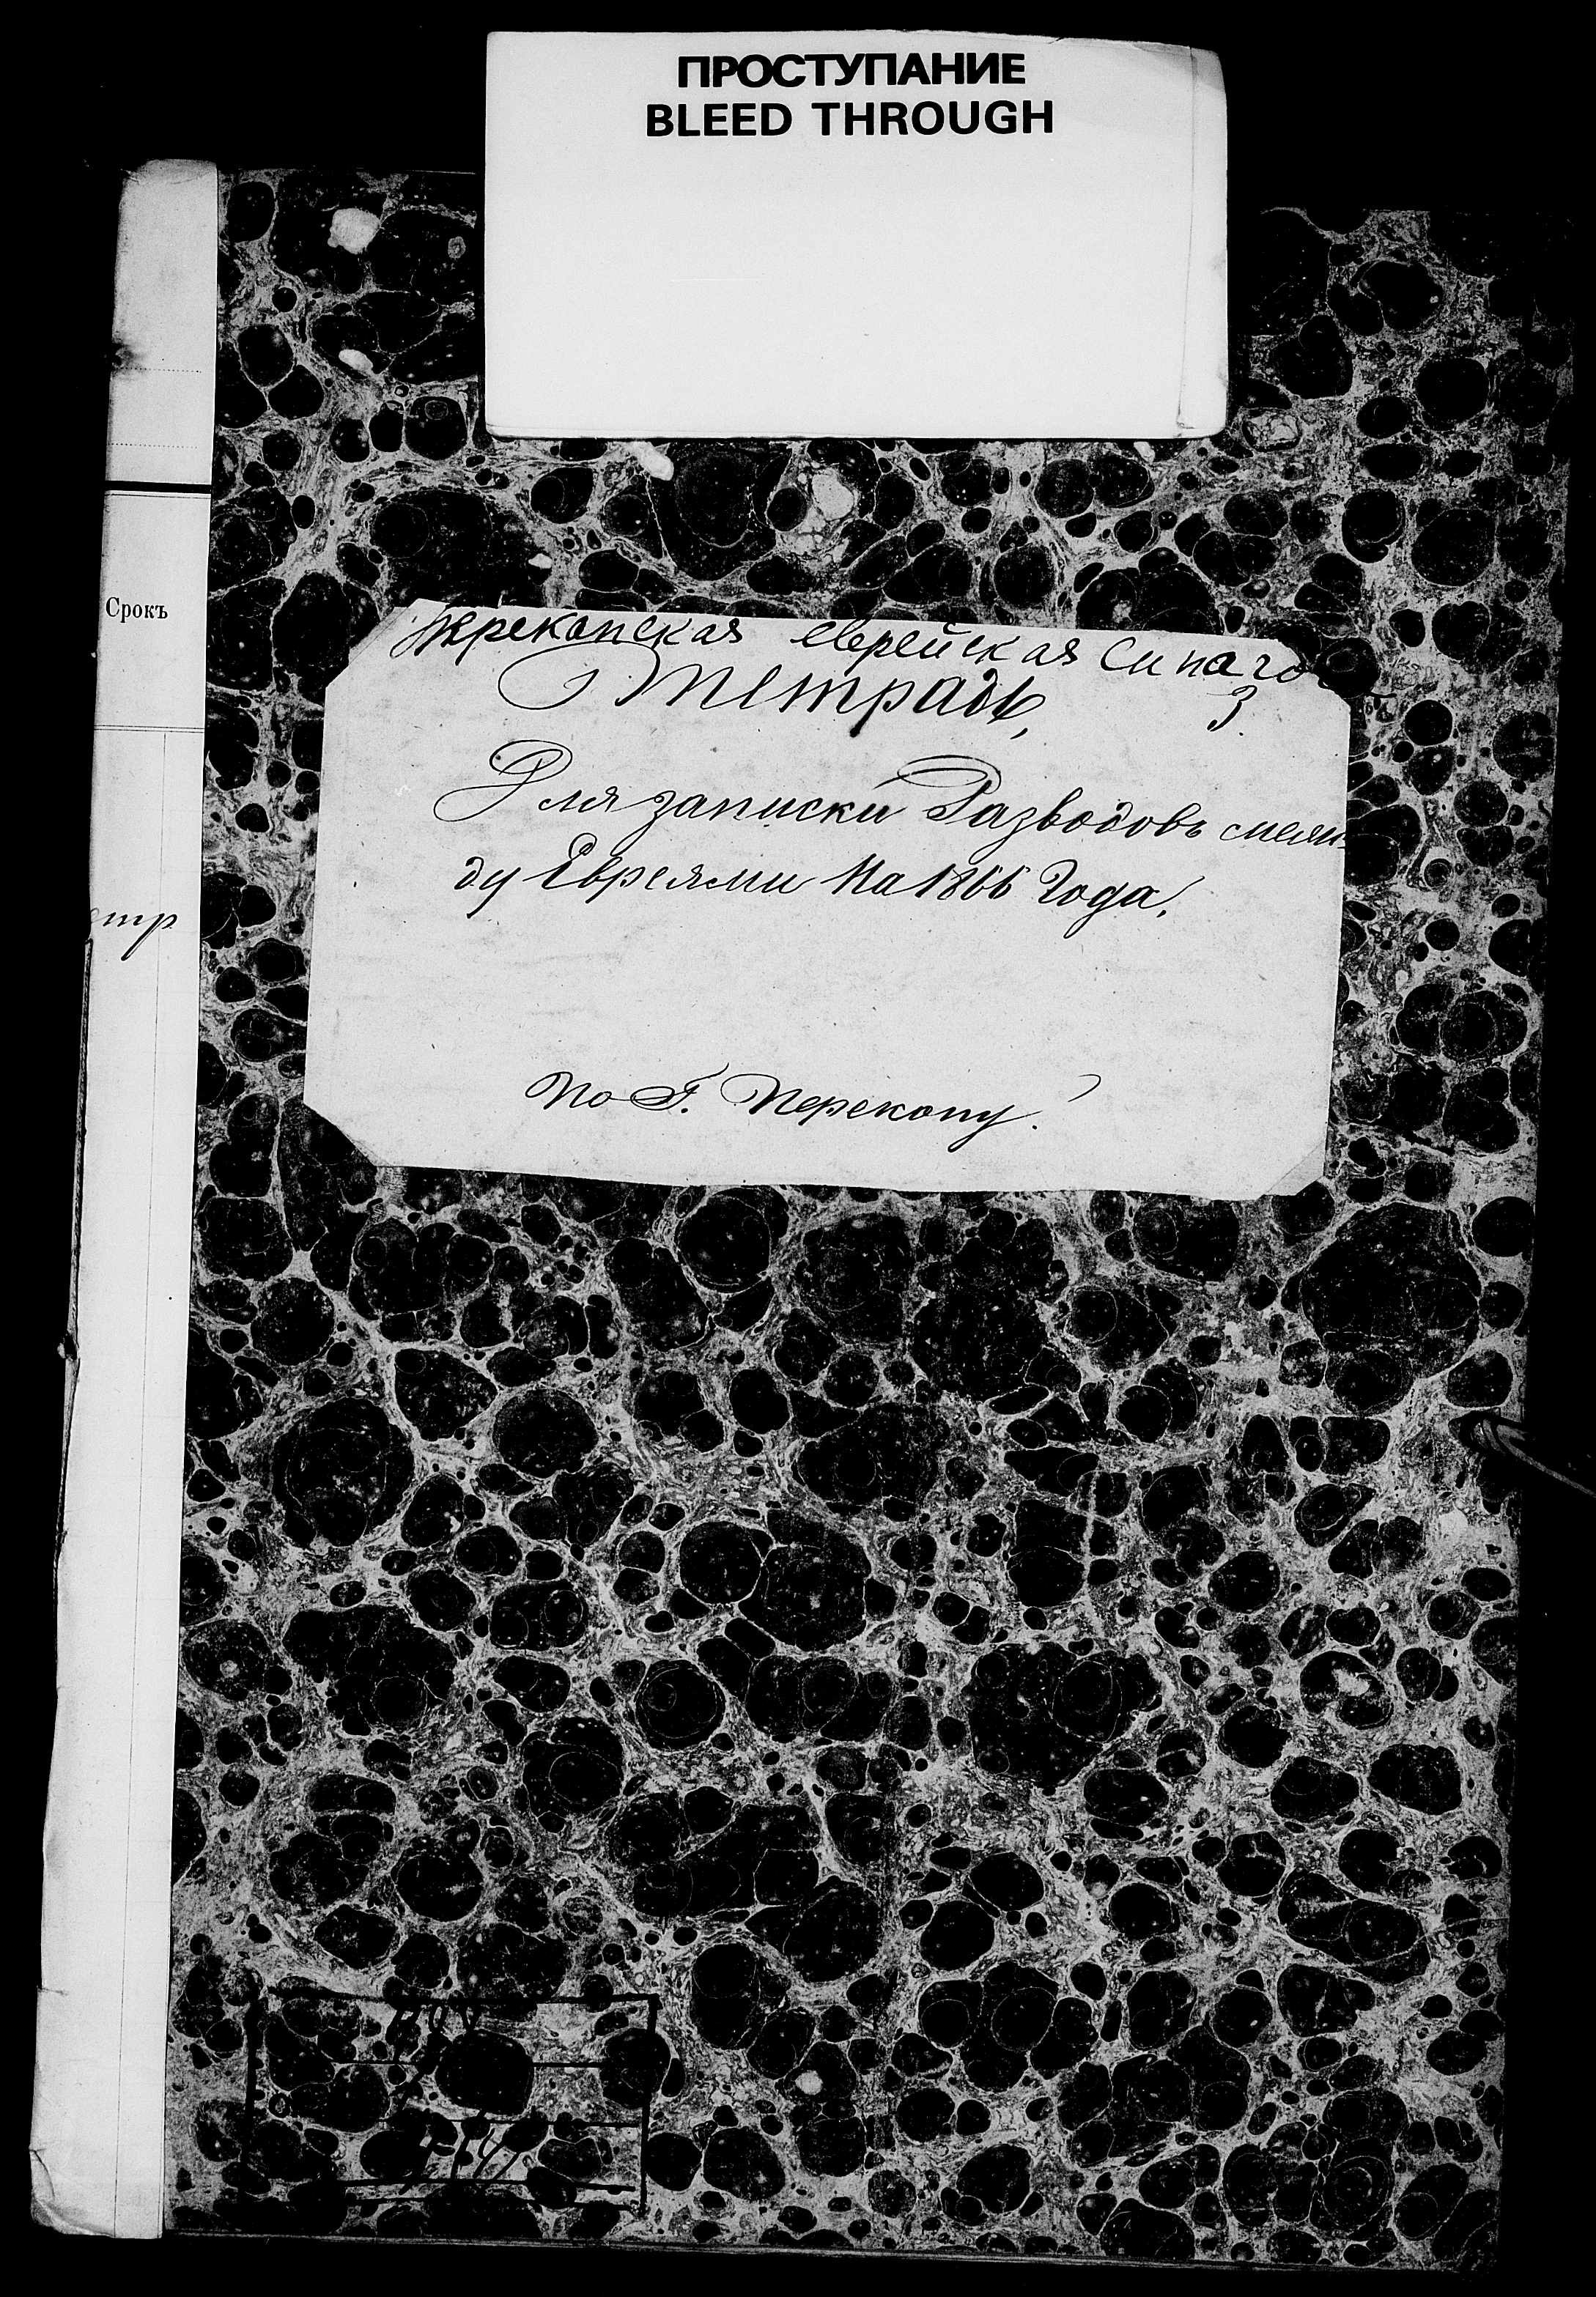 ПРОСТУПАНИЕ
BLEED THROUGH
Срокъ
Перекопская еврейская синагога
Тетрадь, 3.
Для записки Разводовъ меж-
ду Евреями На 1866 Года.
По Г. Перекопу.